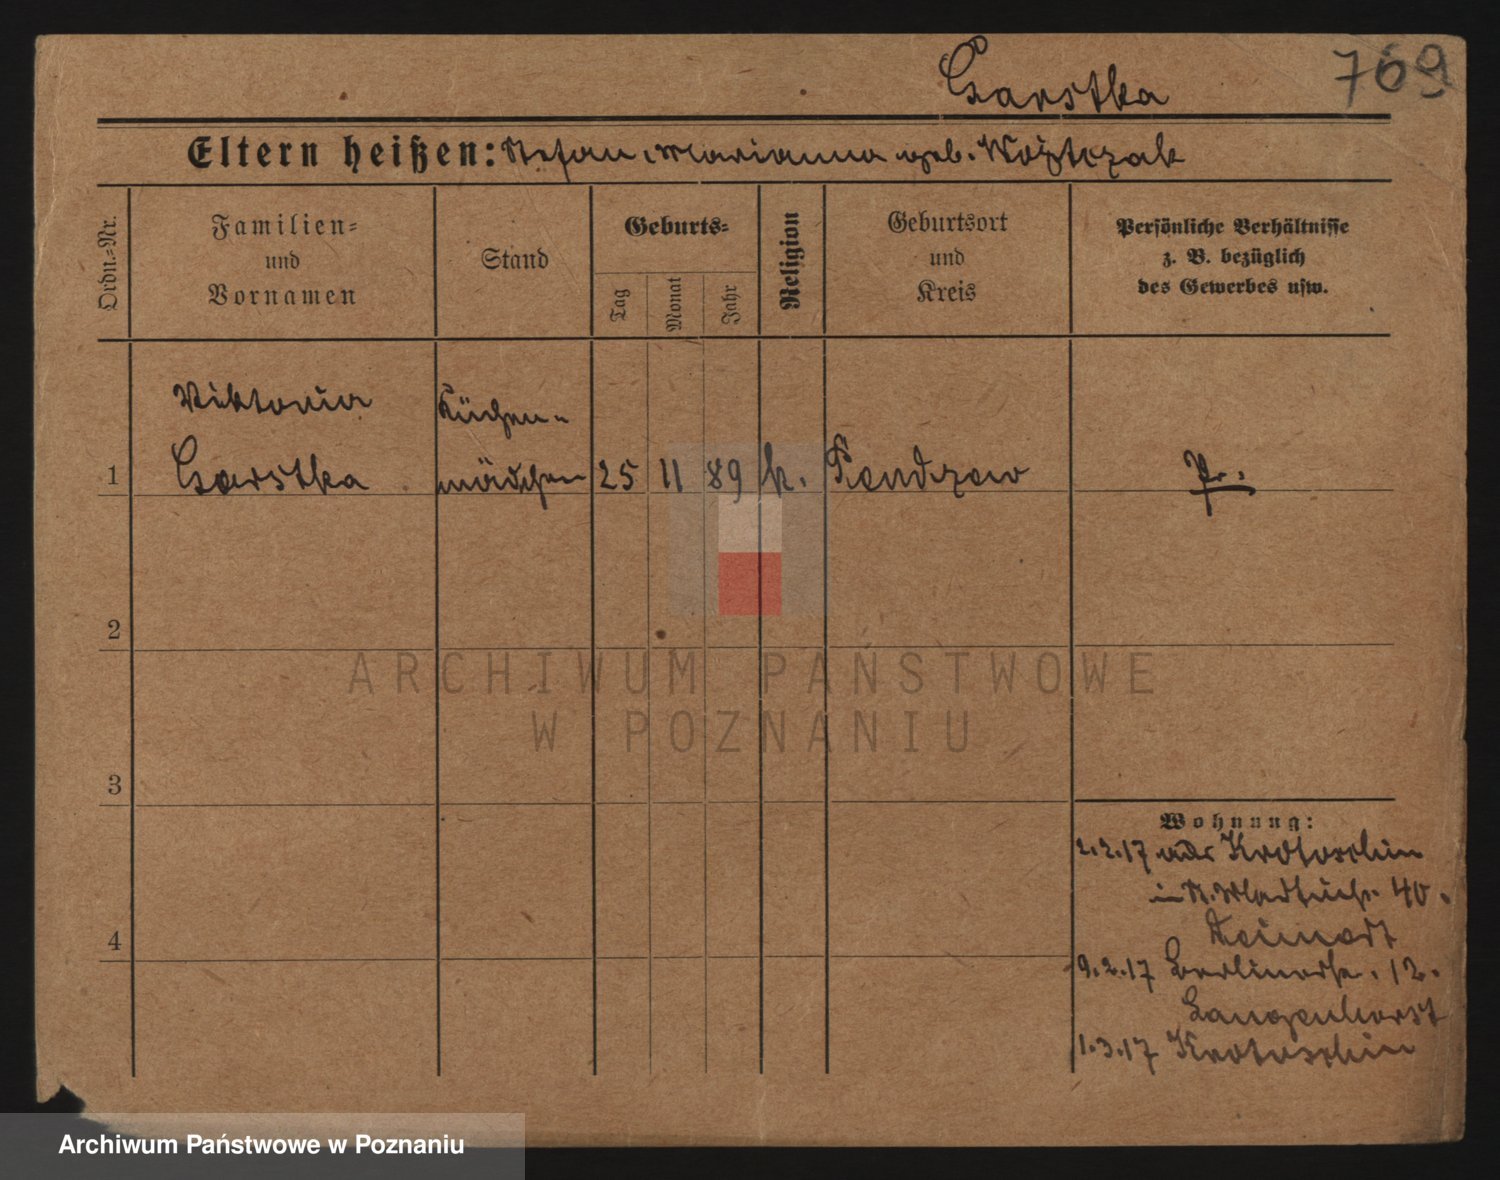 Garstka
769
Eltern heißen: Stefan, Marianna geb. Wojtczak
Ordn.-Nr.
Familien-
und
Vornamen
Stand
Geburts-
Tag
Monat
Jahr
Religion
Geburtsort
und
Kreis
Persönliche Verhältnisse
z. B. bezüglich
des Gewerbes usw.
Viktoria Küchen-
1 Garstka mädchen 25 11 89 k. Kendzew Pr.
2
3
4
Wohnung:
2.2.17 Krotoschin
in 40.
9.2.17 Berlinerstr. 12.
Langenhorst
1.3.17 Krotoschin
ARCHIWUM PAŃSTWOWE
W POZNANIU
Archiwum Państwowe w Poznaniu